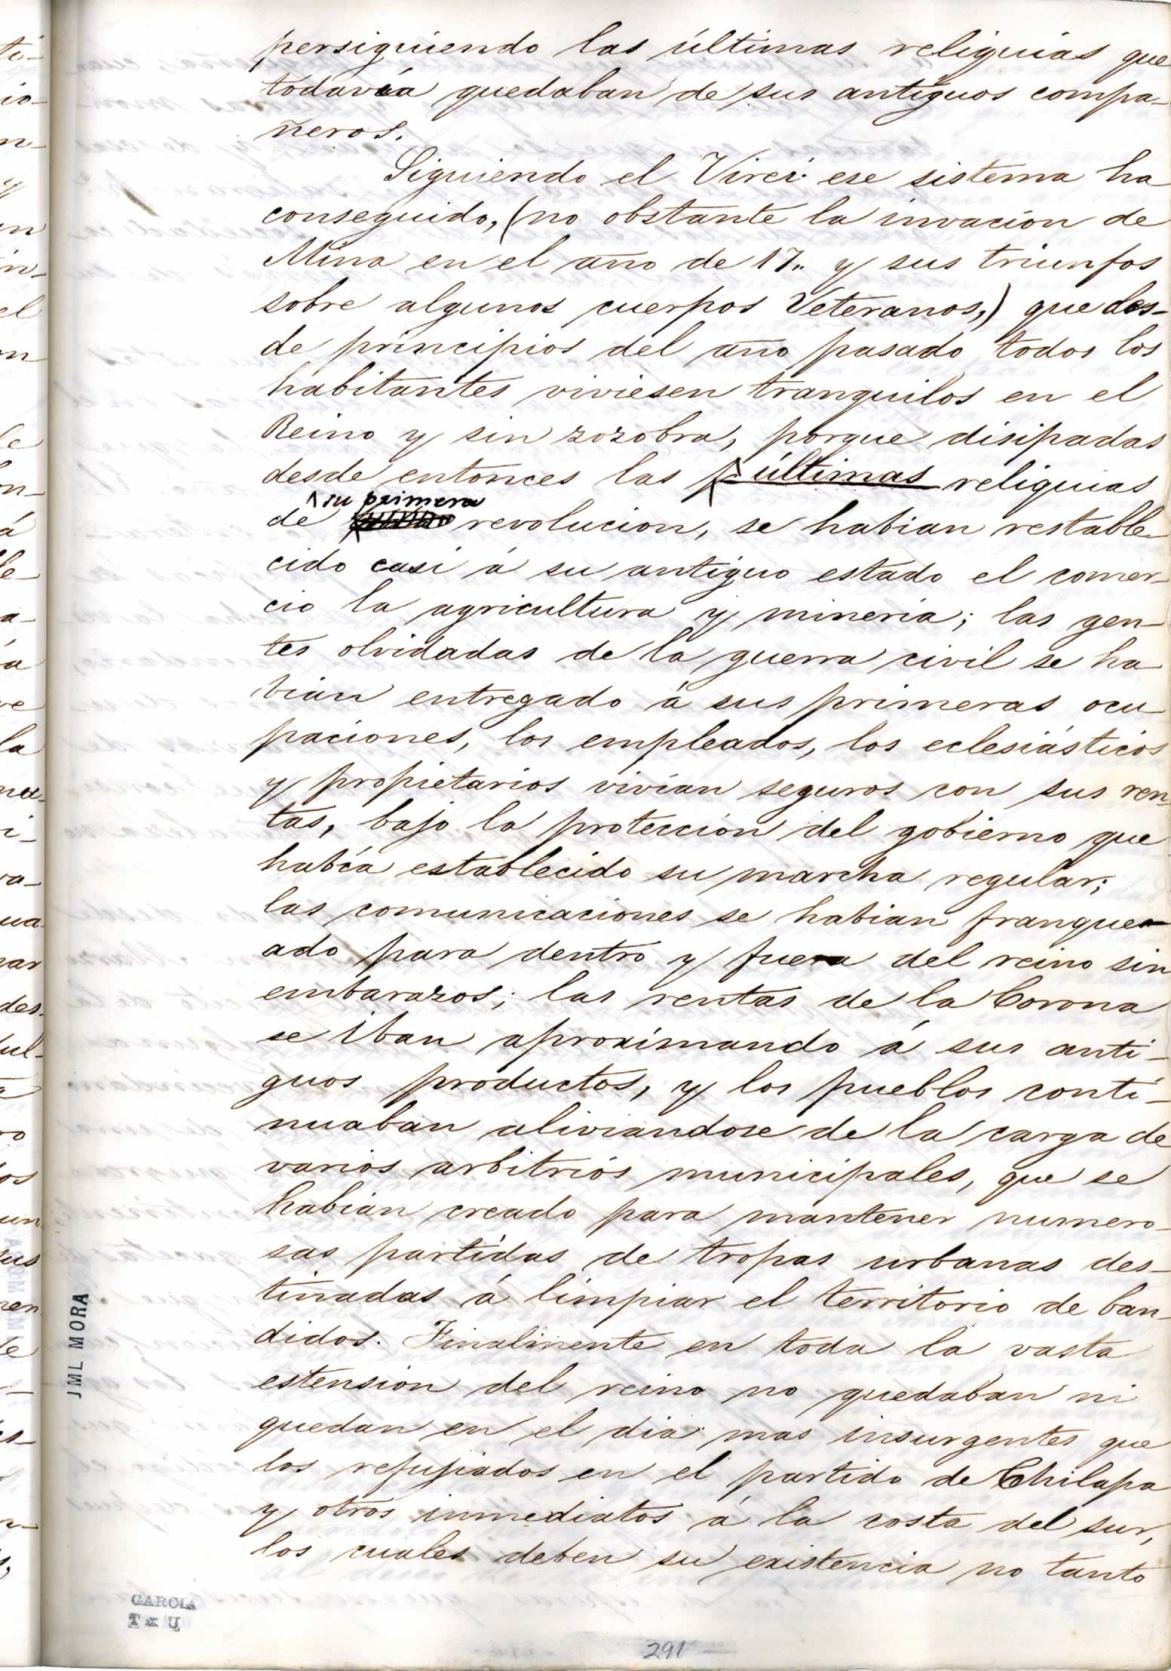 persiguiendo las últimas reliquias que
todavía quedaban de sus antiguos compa-
ñeros.
Siguiendo el Virei ese sistema ha
conseguido, (no obstante la invacion de
Mina en el año de 17,, y sus triunfos
sobre algunos cuerpos Veteranos,) que des-
de principios del año pasado todos los
habitantes viviesen tranquilos en el
Reino y sin zozobra, porque disipadas
desde entonces las últimas reliquias
su primera
de revolucion, se habian restable-
cido casi á su antiguo estado el comer-
cio la agricultura y mineria; las gen-
tes olvidadas de la guerra civil se ha
bian entregado á sus primeras ocu
paciones, los empleados, los eclesiásticos
y propietarios vivian seguros con sus ren
tas, bajo la proteccion del gobierno que
había establecido su marcha regular;
las comunicaciones se habian franque-
ado para dentro y fuera del reino sin
embarazos; las rentas de la Corona
se iban aproximando á sus anti-
guos productos, y los pueblos conti-
nuaban aliviandose de la carga de
varios arbitrios municipales, que se
habian creado para mantener numero-
sas partidas de tropas urbanas des-
tinadas á limpiar el territorio de ban-
didos. Finalmente en toda la vasta
estension del reino no quedaban ni
quedan en el dia mas insurgentes que
los refujiados en el partido de Chilapa
y otros inmediatos á la costa del sur,
los cuales deben su existencia no tanto
JML MORA
GARCIA
291